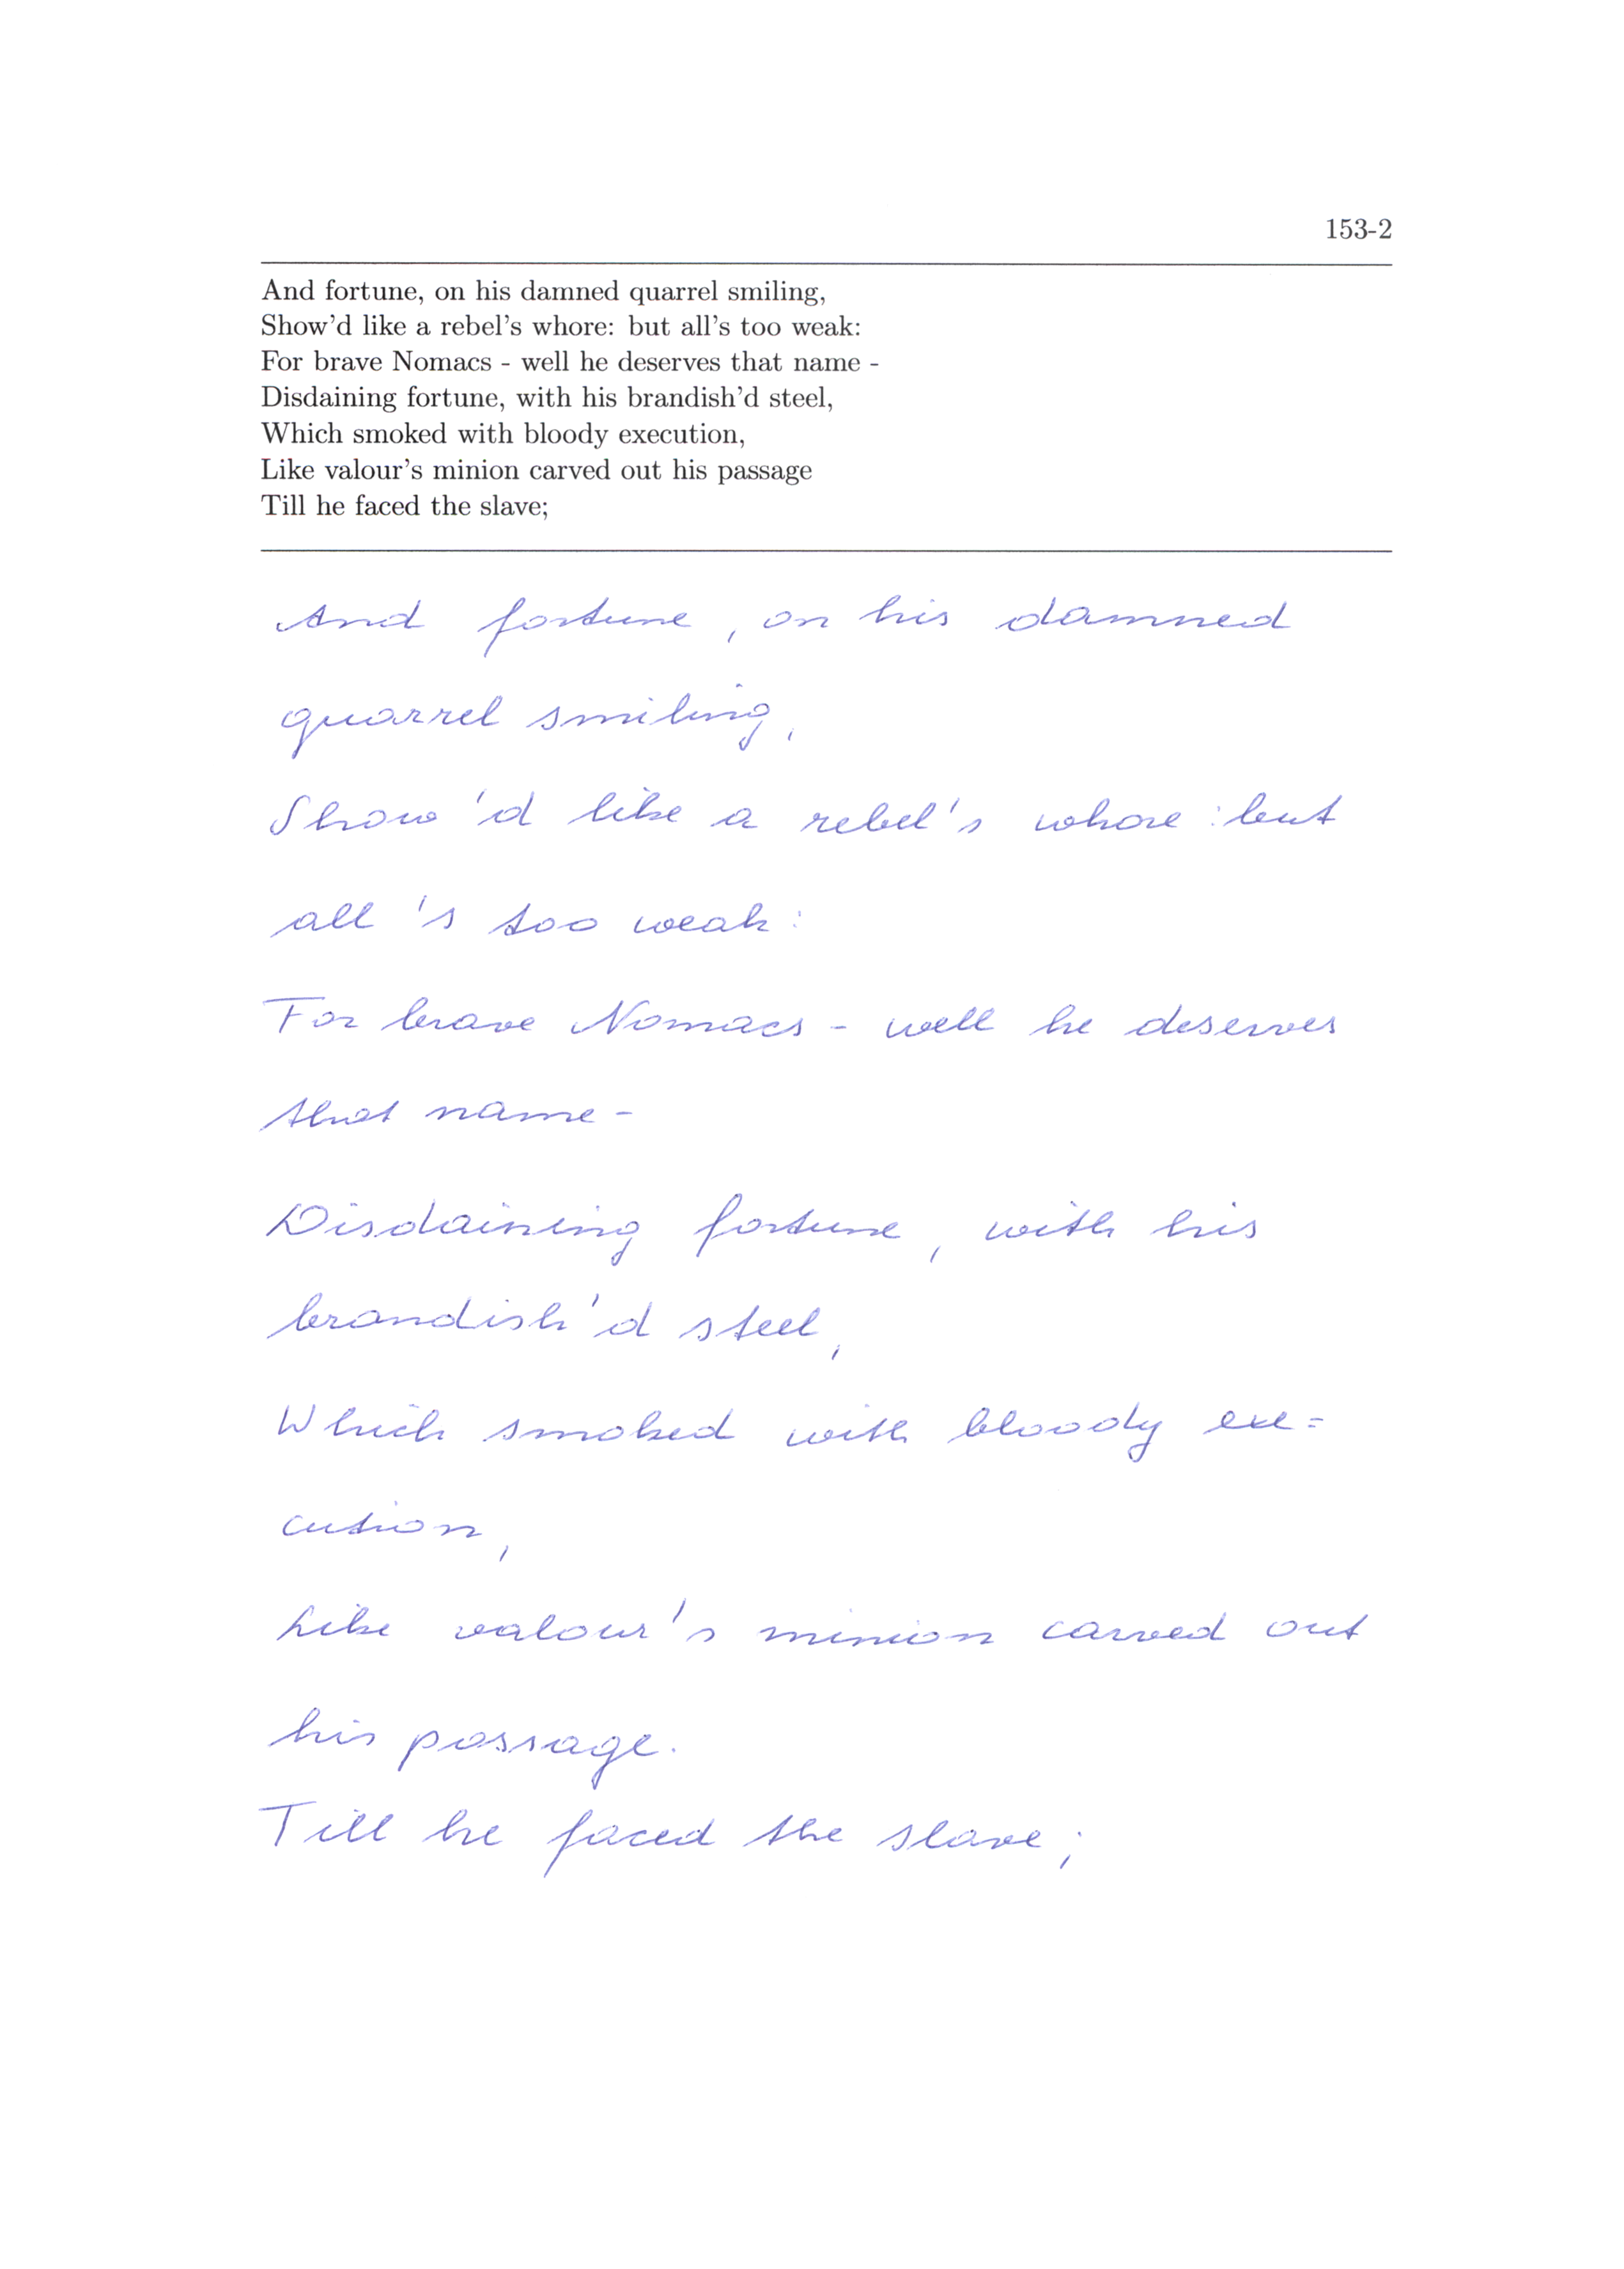 153-2
And fortune, on his damned quarrel smiling,
Show'd like a rebel's whore: but all's too weak:
For brave Nomacs - well he deserves that name -
Disdaining fortune, with his brandish'd steel,
Which smoked with bloody execution,
Like valour's minion carved out his passage
Till he faced the slave;
And fortune, on his damned
quarrel smiling,
Show'd like a rebel's whore: but
all's too weak:
For brave Nomacs - well he deserves
that name -
Disdaining fortune, with his
brandish'd steel,
Which smoked with bloody exe=
cution,
Like valour's minion carved out
his passage.
Till he faced the slave;